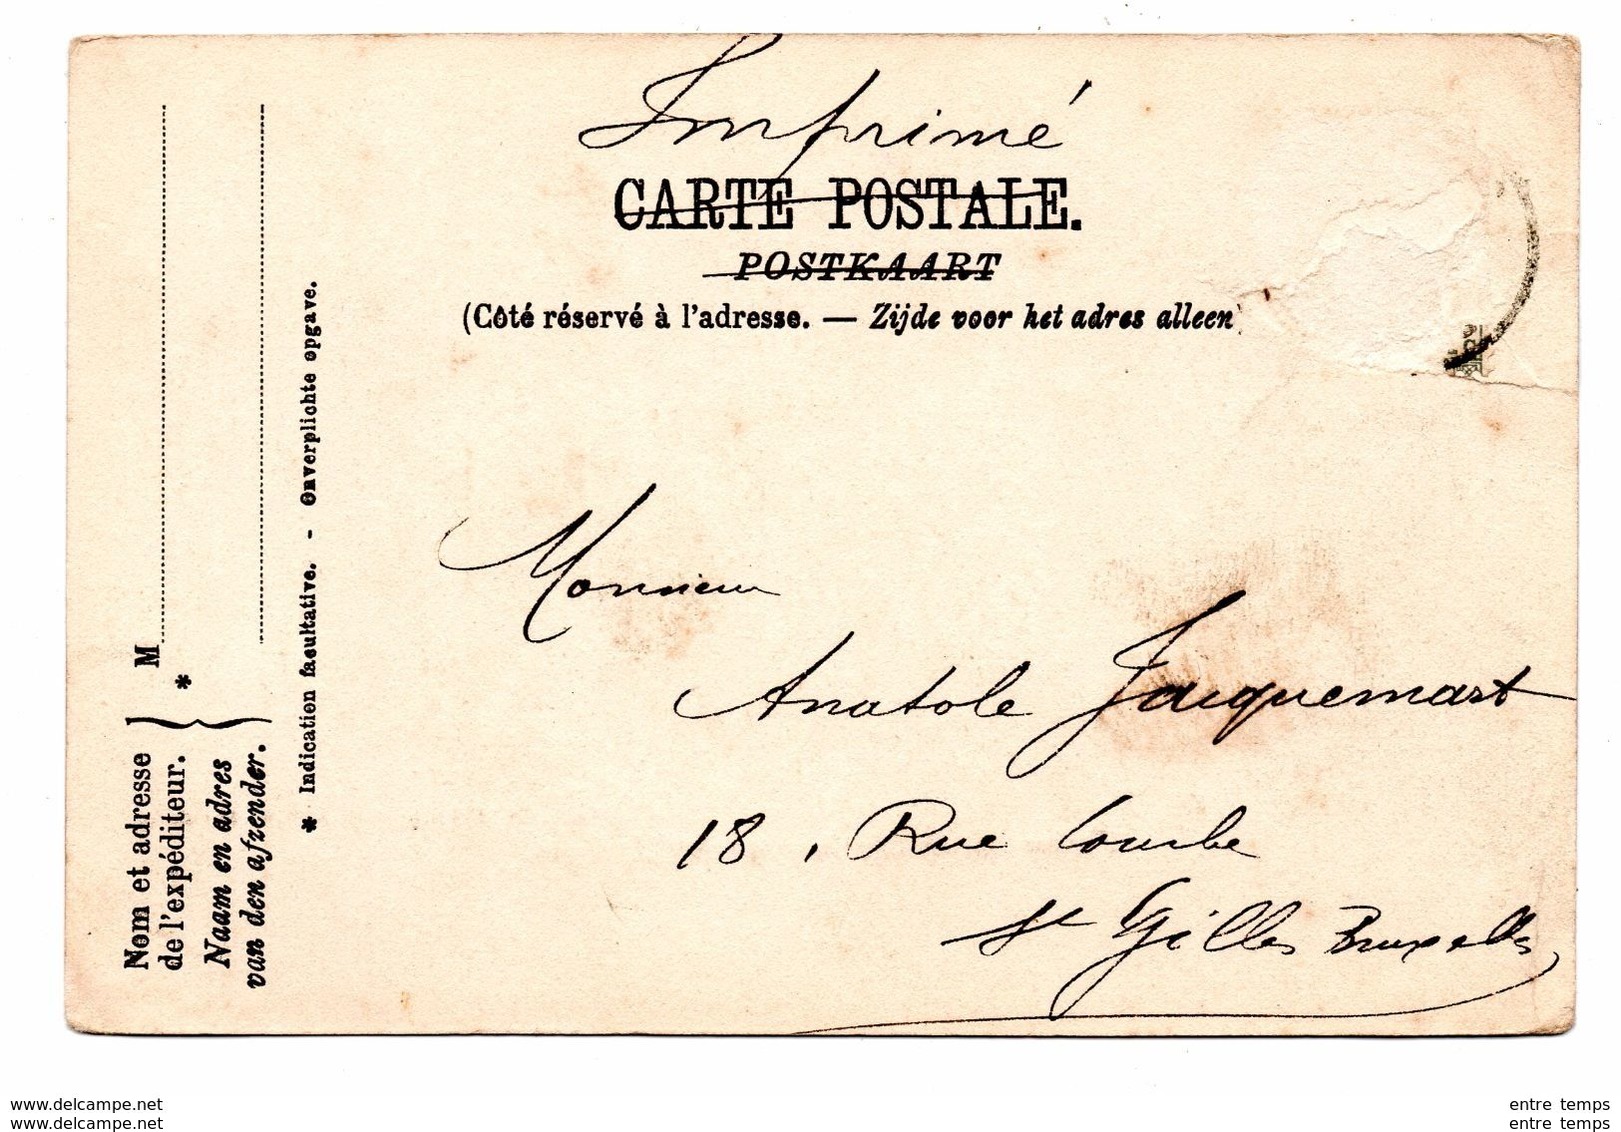 Imprimé
CARTE POSTALE.
POSTKAART
(Côté réservé à l'adresse. — Zijde voor het adres alleen
Monsieur
Anatole Jacquemart
18, Rue Courbe
St Gilles Bruxelles
M
*
Nom et adresse
de l'expéditeur.
Naam en adres
van den afzender.
* Indication facultative. - Onverplichte opgave.
www.delcampe.net
www.delcampe.net
entre temps
entre temps